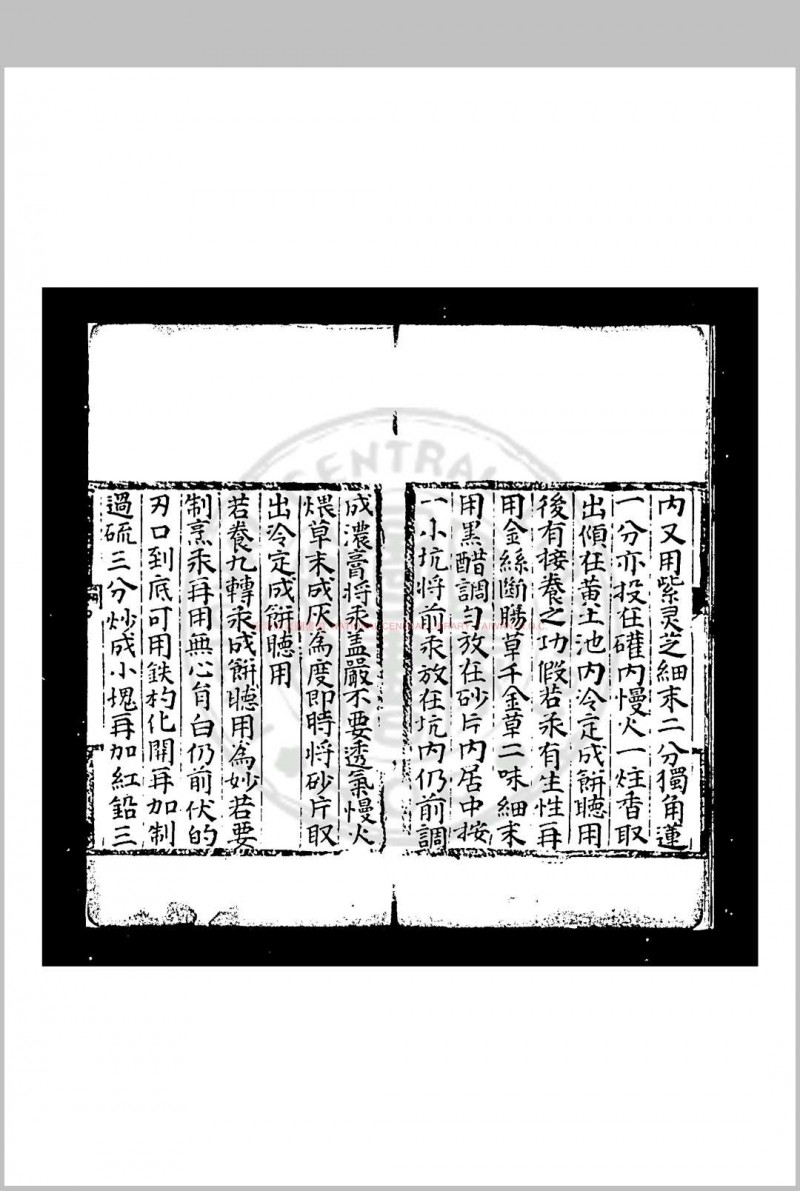 内又用紫灵芝細末二分獨角蓮
一分亦投在礶内慢火一炷香取
出傾在黄土池内冷定成餅聴用
後有接養之功假若汞有生性再
用金絲斷腸草千金草二味細末
用黑醋調勻放在砂片内居中按
一小坑将前汞放在坑内仍前調
成濃膏将汞盖嚴不要透氣慢火
煨草末成灰為度即時将砂片取
出冷定成餅聴用
若養九轉汞成餅聴用為妙若要
制烹汞再用無心旨白仍前伏的
刃口到底可用鉄杓化開再加制
過硫三分炒成小塊再加紅鉛三
CENTRAL